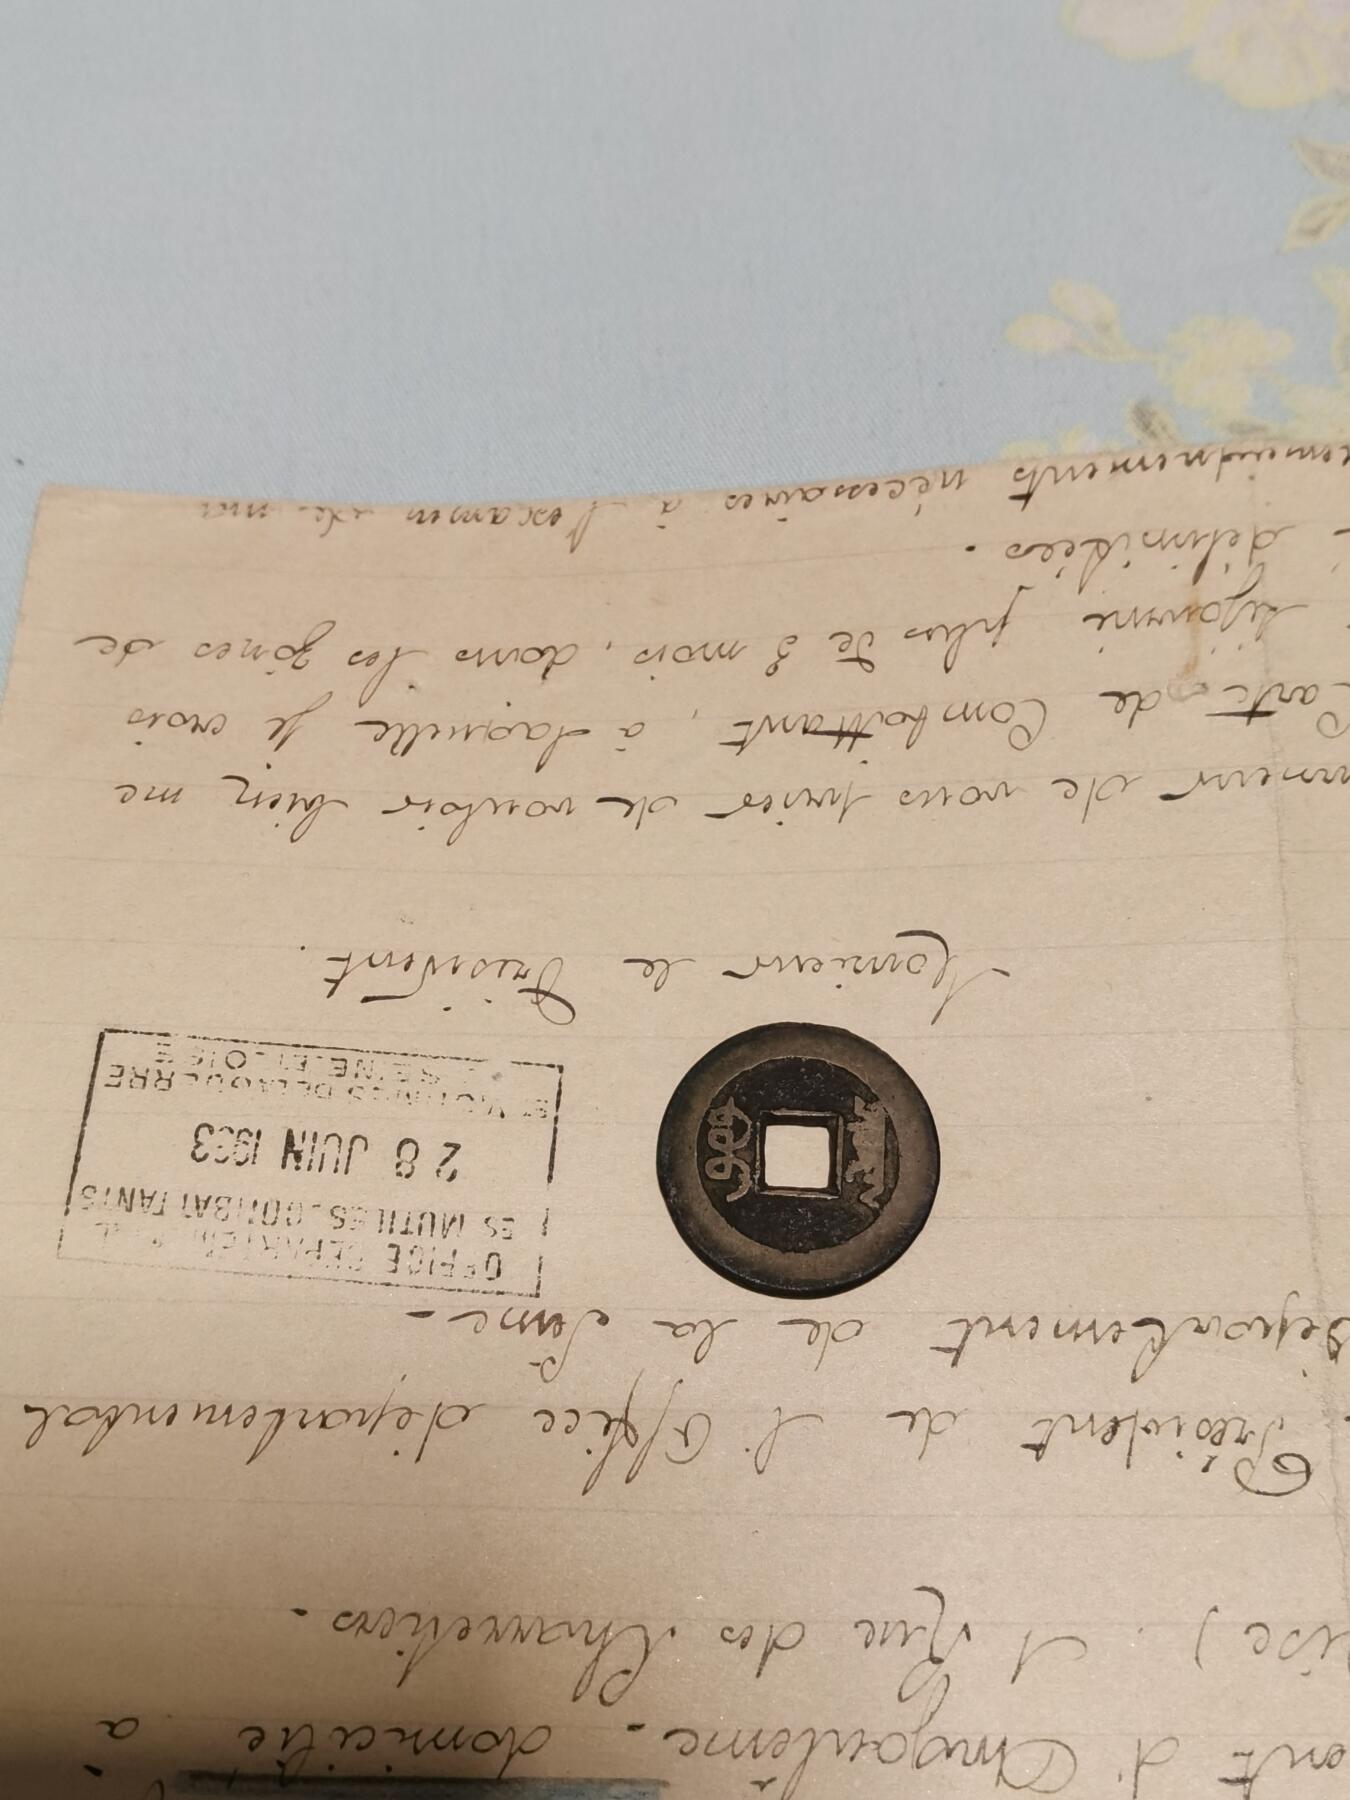 d'Angoulême - domicilié à
1 Rue des Charretiers.
Président de l'Office départemental
Département de la Seine -
OFFICE DEPARTEMENTAL
ES MUTILES, COMBATTANTS
28 JUIN 1933
ET VICTIMES DE LA GUERRE
SEINE-ET-OISE
Monsieur le Président.
de vous prier de vouloir bien me
Carte de Combattant, à laquelle je crois
séjourné plus de 3 mois, dans les zônes de
délimitées.
nécessaires à l'examen de ma